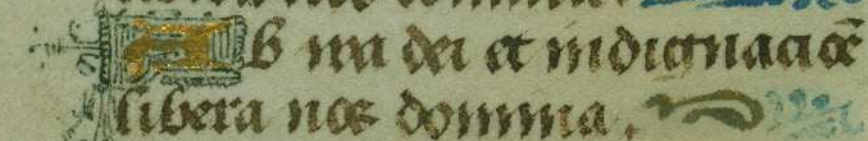 Ab ira dei et indignaciōe
libera nos domina.